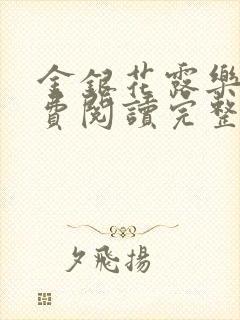 金銀花露樂
費閱讀完整
夕飛揚